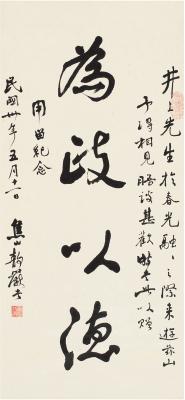 井上先生於春光融融之際來遊茲山
少得相見暢談甚歡特書此以贈
為政以德
用留紀念
民國卅年五月十一日
焦山